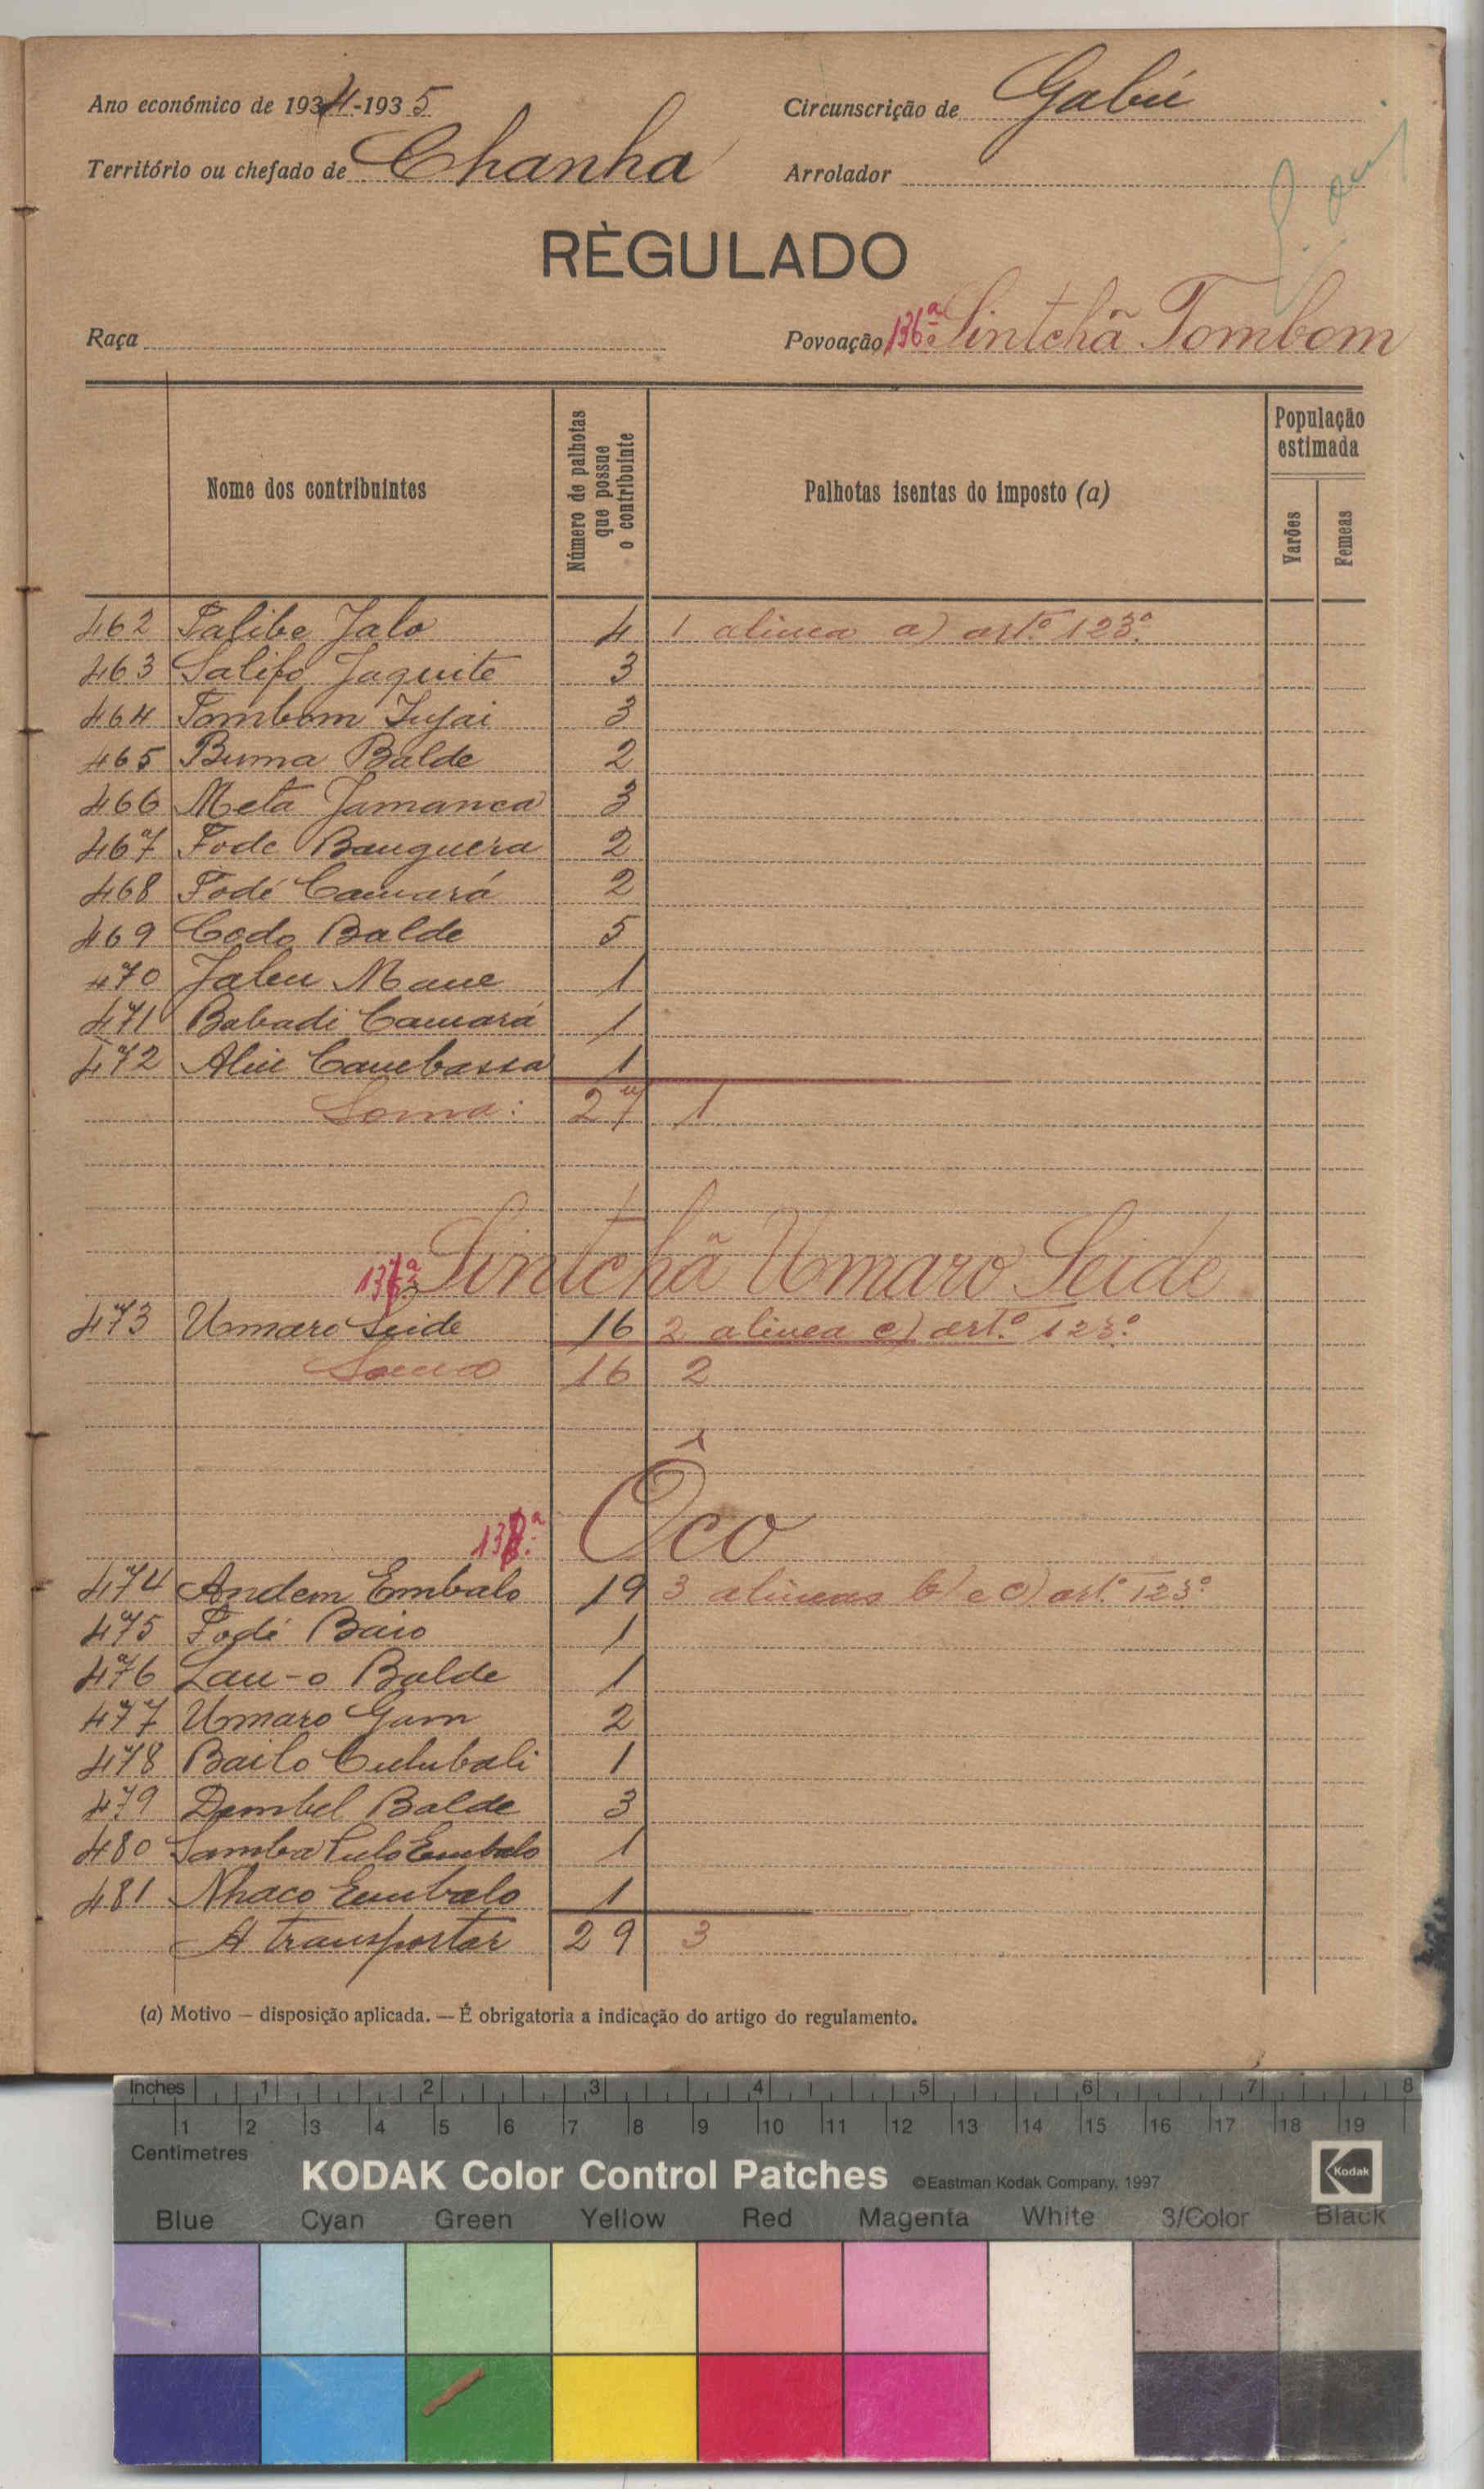 Ano económico de 1934-1935
Circunscrição de Gabú
Território ou chefado de Chanha
Arrolador
RÈGULADO
Raça
Povoação 136.ª Sintchã Tombom
Nome dos contribuintes
Número de palhotas que possue o contribuinte
Palhotas isentas do imposto (a)
População estimada
Varões
Femeas
462 Galibe Jalo 4 1 alinea a) art.º 123.º
463 Salifo Jaquite 3
464 Tombom Jujai 3
465 Buma Balde 2
466 Meta Jamanca 3
467 Fode Banguera 2
468 Fodé Camará 2
469 Codo Balde 5
470 Jaleu Mane 1
471 Babadi Camará 1
472 Aliu Cambassa 1
Soma: 27 1
137ª Sintchã Umaro Seide
473 Umaro Seide 16 2 alinea c) art.º 123.º
Soma 16 2
138.ª Ôco
474 Andem Embalo 19 3 alineas b) e c) art.º 123.º
475 Fodé Baio 1
476 Lau-o Balde 1
477 Umaro Gam 2
478 Bailo Culubali 1
479 Dembel Balde 3
480 Samba Culo Embalo 1
481 Nhaco Embalo 1
A transportar 29 3
(a) Motivo — disposição aplicada. — É obrigatoria a indicação do artigo do regulamento.
Inches 1 2 3 4 5 6 7 8
1 2 3 4 5 6 7 8 9 10 11 12 13 14 15 16 17 18 19
Centimetres
KODAK Color Control Patches ©Eastman Kodak Company, 1997 Kodak
Blue Cyan Green Yellow Red Magenta White 3/Color Black